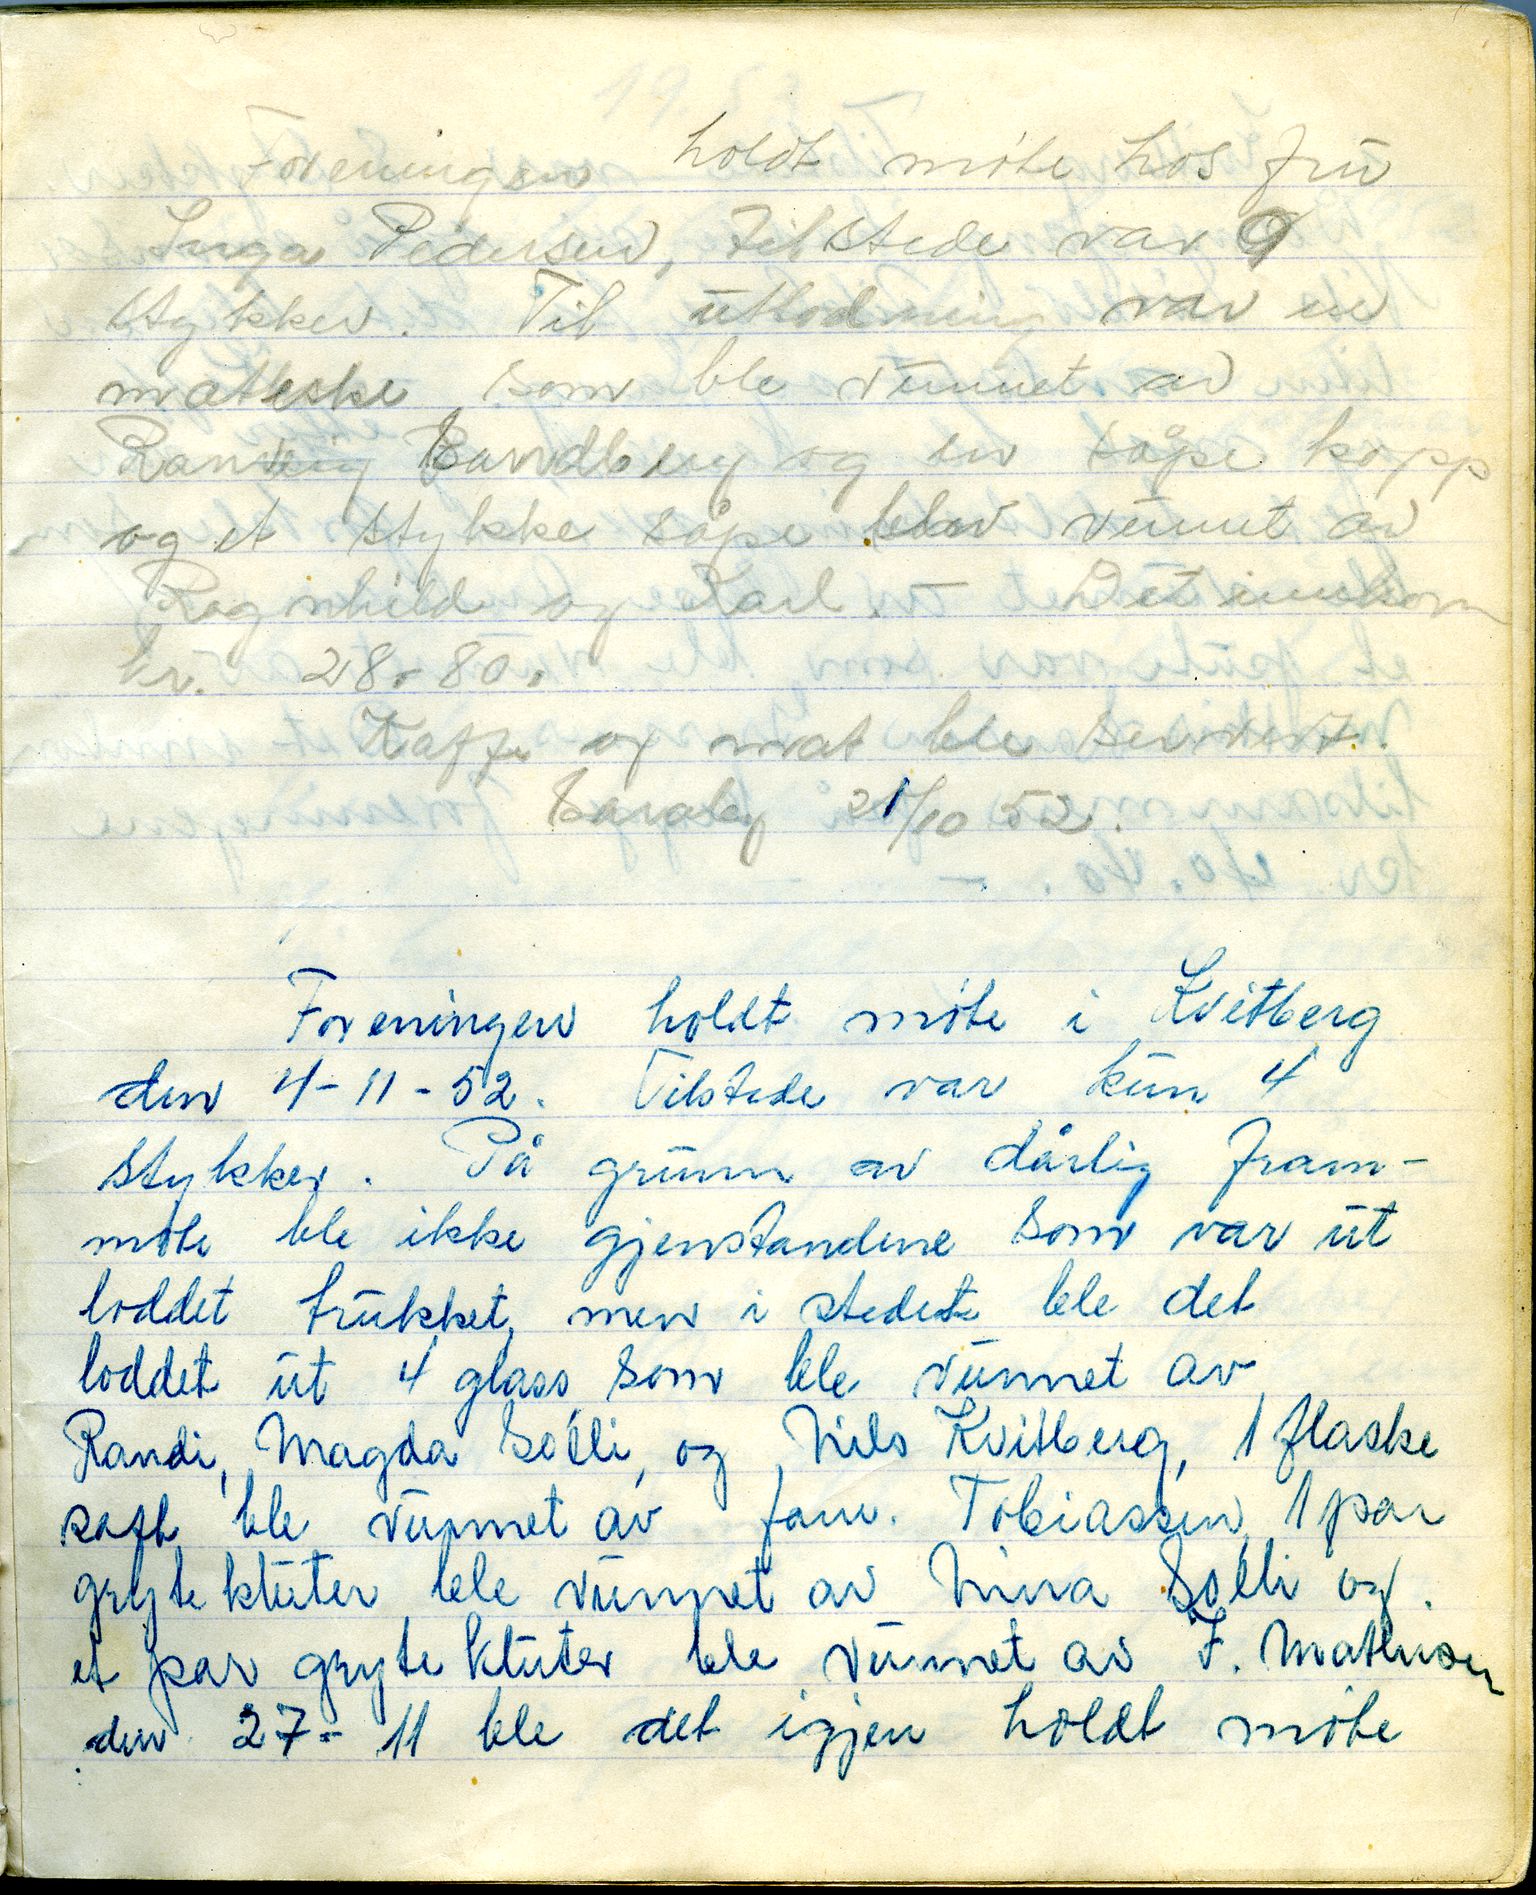 Foreningen holdt møte hos fru
Inga Pedersen, tilstede var 9
stykker. Til utlodning var en
mateske som ble vunnet av
Ranveig Sandberg og en såpe kopp
og et stykke såpe blev vunnet av
Ragnhild og Karl. Det innkom
kr. 28.80.
Kaffe og mat ble servert.
Saraby 21/10 52.
Foreningen holdt møte i Kvitberg
den 4-11-52. Tilstede var kun 4
stykker. På grunn av dårlig fram-
møte ble ikke gjenstandene som var ut
loddet trukket, men i stedet ble det
loddet ut 4 glass, som ble vunnet av
Randi, Magda Solli, og Nils Kvitberg, 1 flaske
saft ble vunnet av fam. Tobiassen, 1 par
gryte kluter ble vunnet av Nina Solli og
et par gryte kluter ble vunnet av F. Mathisen
den 27-11 ble det igjen holdt møte